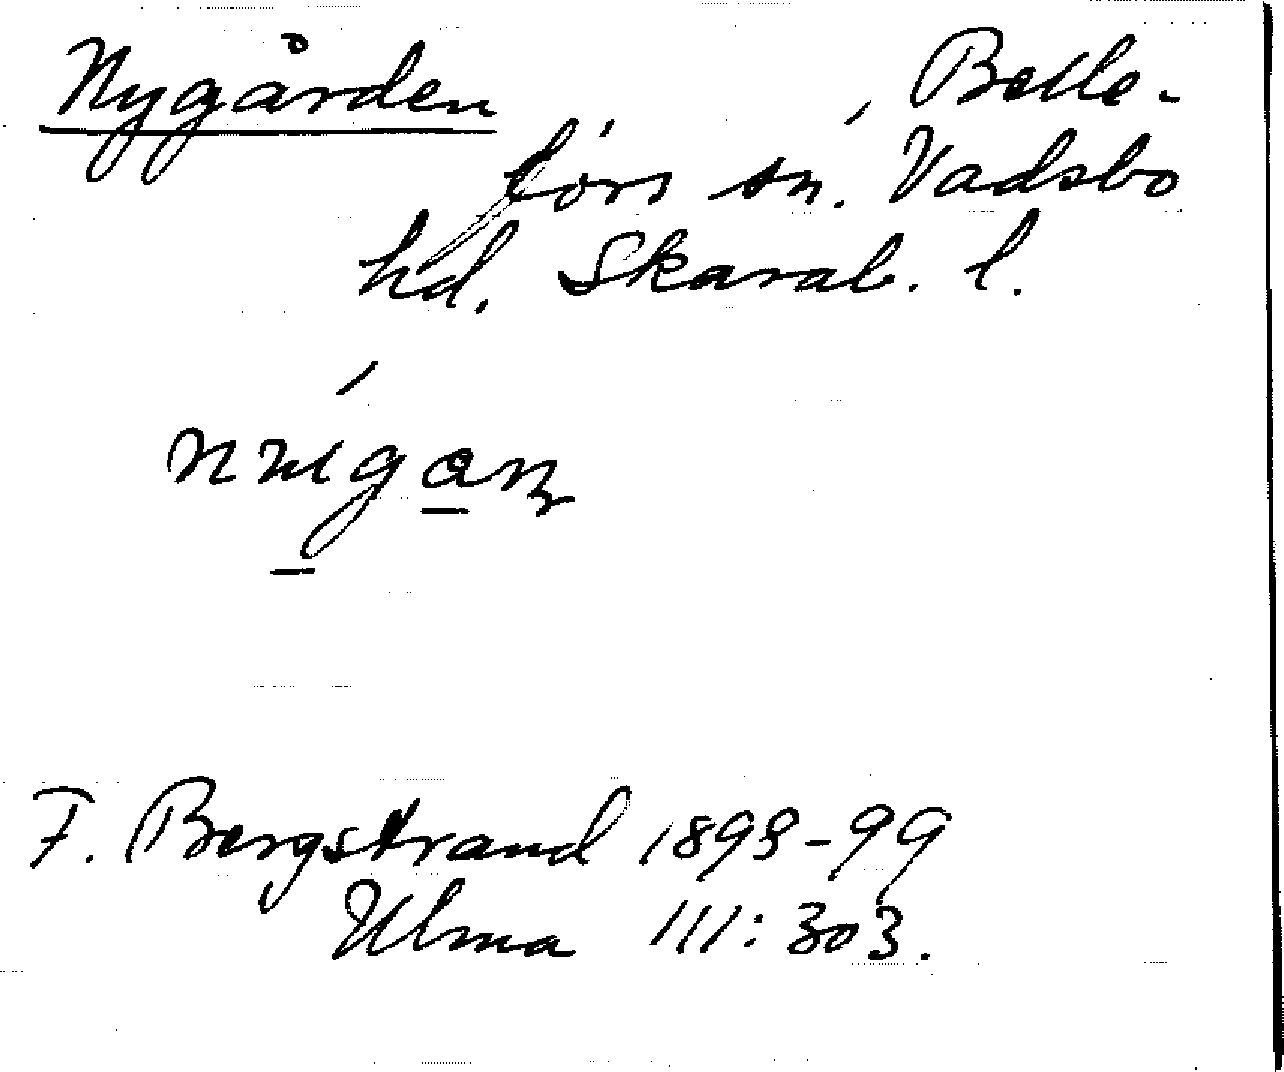 Nygården, Belle-
fors sn. Vadsbo
hd. Skarab. l.
F. Bergstrand 1898-99
Ulma 111:303.